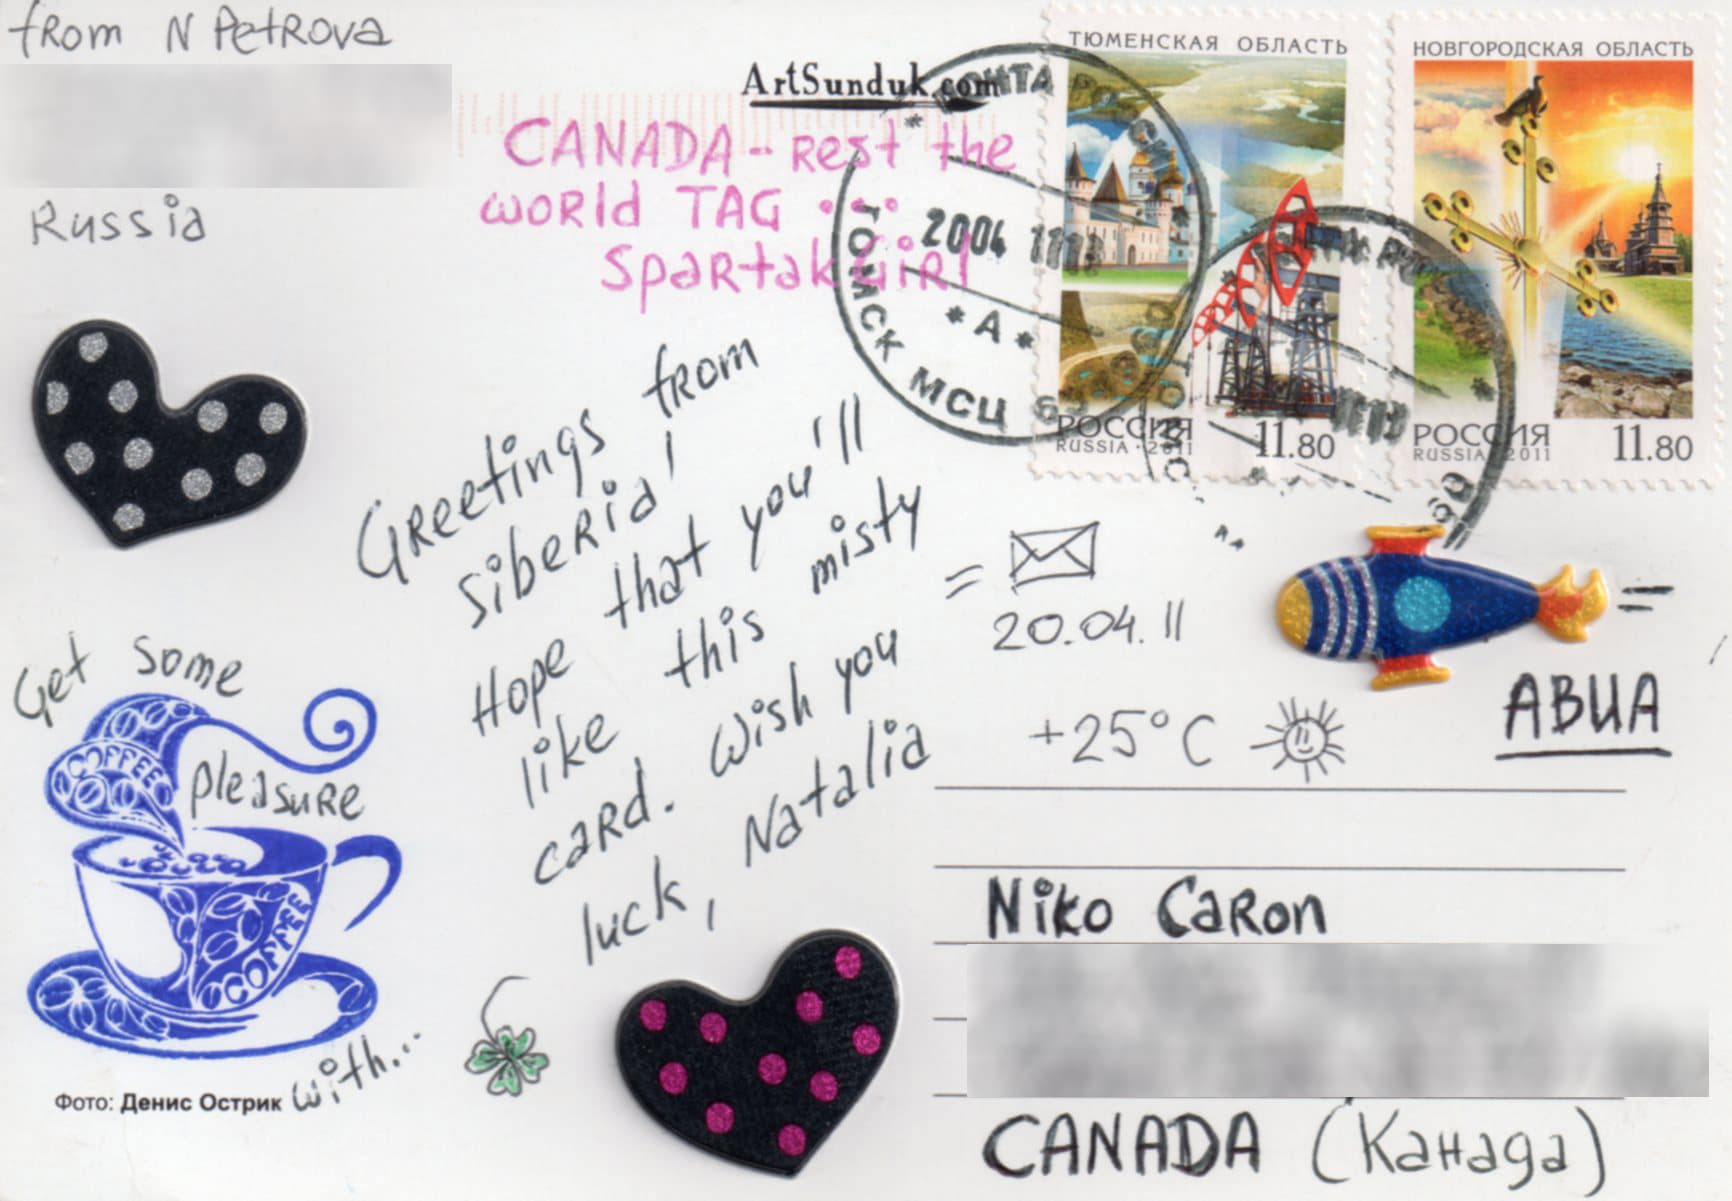 from N Petrova
Russia
ArtSunduk.com
CANADA-- Rest the
world TAG ...
SpartakGirl
ТЮМЕНСКАЯ ОБЛАСТЬ
РОССИЯ
RUSSIA · 2011
11.80
НОВГОРОДСКАЯ ОБЛАСТЬ
РОССИЯ
RUSSIA 2011
11.80
2004 11
* А *
МСЦ
Greetings from
Siberia!
Hope that you'll
like this misty
card. Wish you
luck, Natalia
= 20.04.11
+25°C
АВИА
Get some
pleasure
COFFEE
COFFEE
COFFEE
with...
Фото: Денис Острик
Niko Caron
CANADA (Канада)